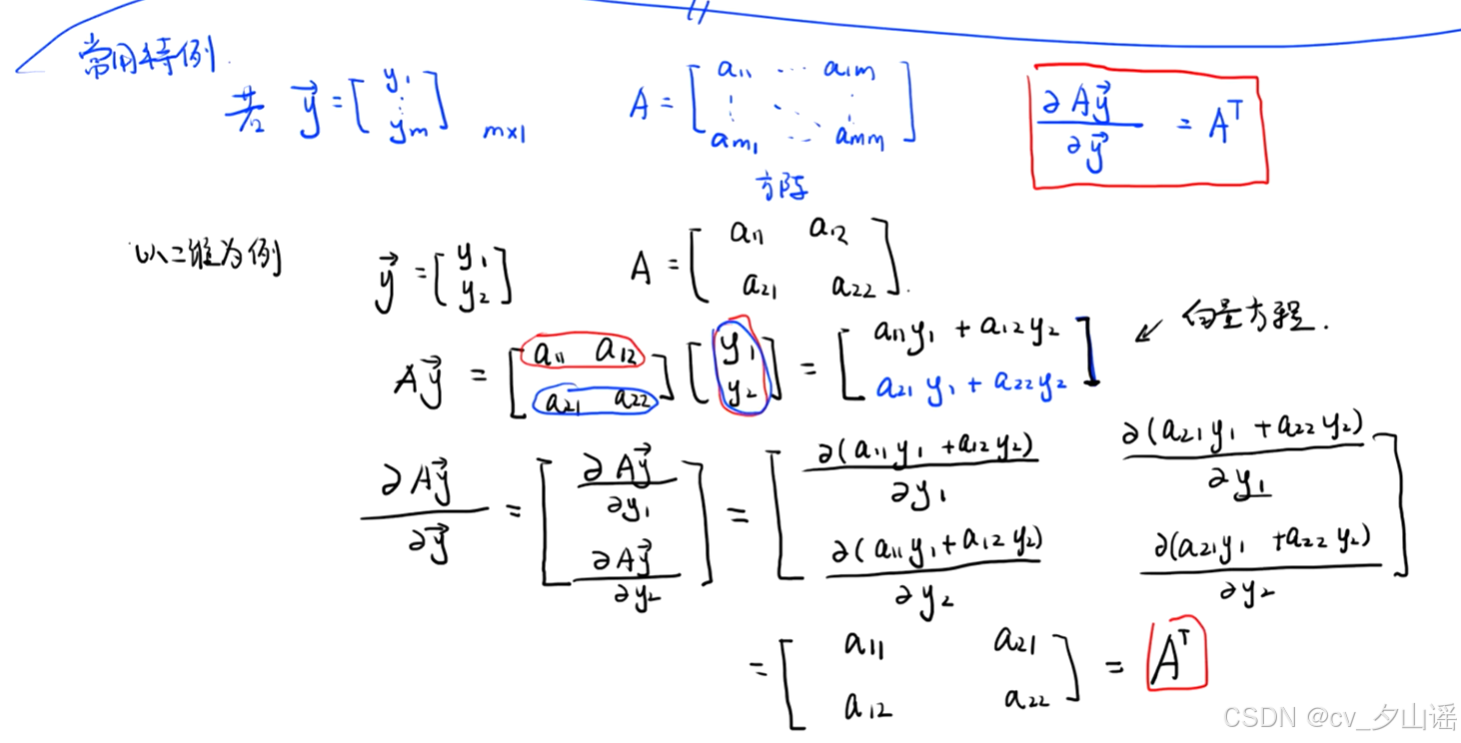 常用特例.
若 y⃗ = [y₁ ⋮ yₘ] m×1 A = [a₁₁ ⋯ a₁ₘ ⋮ ⋱ ⋮ aₘ₁ ⋯ aₘₘ] ∂Ay⃗/∂y⃗ = Aᵀ
方阵
以二维为例 y⃗ = [y₁ y₂] A = [a₁₁ a₁₂ a₂₁ a₂₂].
Ay⃗ = [a₁₁ a₁₂ a₂₁ a₂₂] [y₁ y₂] = [a₁₁y₁ + a₁₂y₂ a₂₁y₁ + a₂₂y₂] ↙ 向量方程.
∂Ay⃗/∂y⃗ = [∂Ay⃗/∂y₁ ∂Ay⃗/∂y₂] = [∂(a₁₁y₁ + a₁₂y₂)/∂y₁ ∂(a₂₁y₁ + a₂₂y₂)/∂y₁ ∂(a₁₁y₁ + a₁₂y₂)/∂y₂ ∂(a₂₁y₁ + a₂₂y₂)/∂y₂]
= [a₁₁ a₂₁ a₁₂ a₂₂] = Aᵀ
CSDN @cv_夕山谣